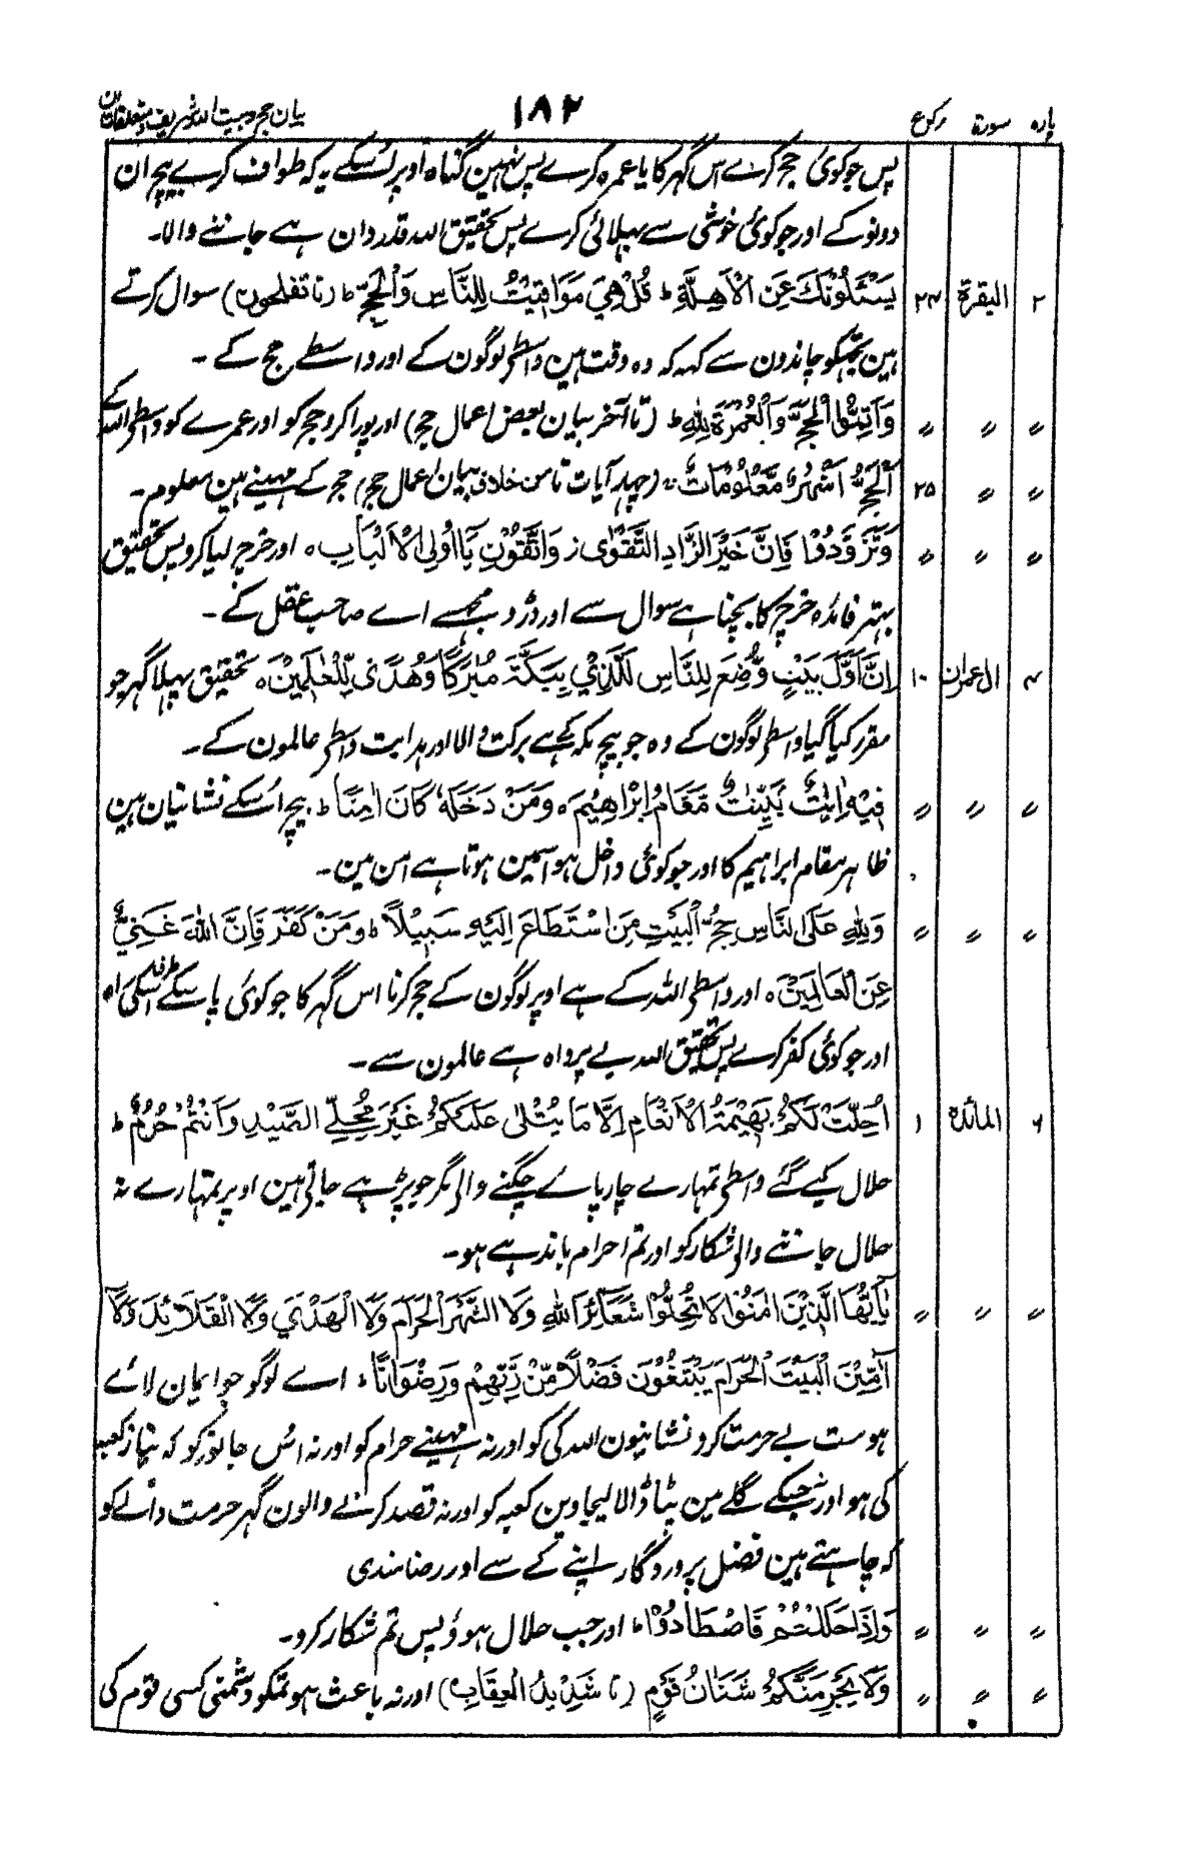 پارہ سورۃ رکوع ۱۸۲ بیان حج و بیت اللہ شریف و متعلقات آن
پس جو کوئی حج کرے اس گہر کا یا عمرہ کرے پس نہین گناہ اوپر اُسکے یہ کہ طواف کرے بیچ ان
دونو کے اور جو کوئی خوشی سے بہلائی کرے پس تحقیق اللہ قدردان ہے جاننے والا۔
۲ البقرة ۲۴ يَسْـَٔلُوْنَكَ عَنِ الْاَهِلَّةِ ط قُلْ هِيَ مَوَاقِيْتُ لِلنَّاسِ وَالْحَجِّ ط (تا تفلحون) سوال کرتے
ہین تجہکو چاندون سے کہہ کہ وہ وقت ہین واسطے لوگون کے اور واسطے حج کے ۔
〃 〃 〃 وَاَتِمُّوا الْحَجَّ وَالْعُمْرَةَ لِلّٰهِ ط (تا آخر بیان بعض اعمال حج) اور پورا کرو حج کو اور عمرے کو واسطے اللہ کے
〃 〃 ۲۵ اَلْحَجُّ اَشْهُرٌ مَّعْلُوْمَاتٌ (چہار آیات تا من خلاق بیان اعمال حج) حج کے مہینے ہین معلوم۔
〃 〃 〃 وَتَزَوَّدُوْا فَاِنَّ خَيْرَ الزَّادِ التَّقْوٰى ز وَاتَّقُوْنِ يَا اُولِي الْاَلْبَابِ ہ اور خرچ لیا کرو پس تحقیق
بہتر فائدہ خرچ کا بچنا ہے سوال سے اور ڈرو مجہسے اے صاحب عقل کے ۔
۴ ال عمران ۱۰ اِنَّ اَوَّلَ بَيْتٍ وُّضِعَ لِلنَّاسِ لَلَّذِيْ بِبَكَّةَ مُبٰرَكًا وَّهُدًى لِّلْعٰلَمِيْنَ ہ تحقیق پہلا گہر جو
مقرر کیا گیا واسطے لوگون کے وہ جو بیچ مکہ کے ہے برکت والا اور ہدایت واسطے عالمون کے ۔
〃 〃 〃 فِيْهِ اٰيٰتٌ بَيِّنٰتٌ مَّقَامُ اِبْرَاهِيْمَ ہ وَمَنْ دَخَلَهٗ كَانَ اٰمِنًا ط بیچ اُسکے نشانیان ہین
ظاہر مقام ابراہیم کا اور جو کوئی داخل ہو اسمین ہوتا ہے امن مین۔
〃 〃 〃 وَلِلّٰهِ عَلَى النَّاسِ حِجُّ الْبَيْتِ مَنِ اسْتَطَاعَ اِلَيْهِ سَبِيْلًا ط وَمَنْ كَفَرَ فَاِنَّ اللّٰهَ غَنِيٌّ
عَنِ الْعَالَمِيْنَ ہ اور واسطے اللہ کے ہے اوپر لوگون کے حج کرنا اس گہر کا جو کوئی پا سکے طرف اسکی راہ
اور جو کوئی کفر کرے پس تحقیق اللہ بے پرواہ ہے عالمون سے۔
۶ المائدة ۱ اُحِلَّتْ لَكُمْ بَهِيْمَةُ الْاَنْعَامِ اِلَّا مَا يُتْلٰى عَلَيْكُمْ غَيْرَ مُحِلِّي الصَّيْدِ وَاَنْتُمْ حُرُمٌ ط
حلال کیے گئے واسطے تمہارے چارپائے چگنے والے مگر جو پڑہے جاتی ہین اوپر تمہارے نہ
حلال جاننے والے شکار کو اور تم احرام باندہے ہو۔
〃 〃 〃 يٰاَيُّهَا الَّذِيْنَ اٰمَنُوْا لَا تُحِلُّوْا شَعَآئِرَ اللّٰهِ وَلَا الشَّهْرَ الْحَرَامَ وَلَا الْهَدْيَ وَلَا الْقَلَآئِدَ وَلَا
آٰمِّيْنَ الْبَيْتَ الْحَرَامَ يَبْتَغُوْنَ فَضْلًا مِّنْ رَّبِّهِمْ وَرِضْوَانًا ط اے لوگو جو ایمان لائے
ہو مت بے حرمت کرو نشانیون اللہ کی کو اور نہ مہینے حرام کو اور نہ اس جانور کو کہ نیاز کعبہ
کی ہو اور نہ جسکے گلے مین پٹا ڈالا لیجاوین کعبہ کو اور نہ قصد کرنے والون گہر حرمت والے کو
کہ چاہتے ہین فضل پروردگار اپنے کے سے اور رضامندی
〃 〃 〃 وَاِذَا حَلَلْتُمْ فَاصْطَادُوْا ط اور جب حلال ہوؤ پس تم شکار کرو۔
〃 〃 〃 وَلَا يَجْرِمَنَّكُمْ شَنَاٰنُ قَوْمٍ (تا شَدِيْدُ الْعِقَابِ) اور نہ باعث ہو تمکو دشمنی کسی قوم کی